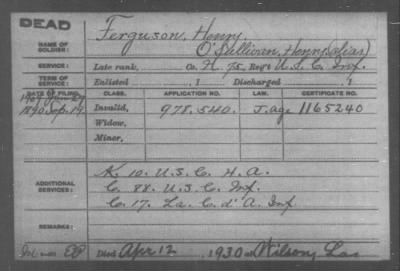 DEAD
NAME OF SOLDIER: Ferguson, Henry,
O'Sullivan, Henry (alias)
SERVICE: Late rank, Co. H, 75 Reg't U.S.C. Inf.
TERM OF SERVICE: Enlisted , 1 Discharged , 1
DATE OF FILING. CLASS. APPLICATION NO. LAW. CERTIFICATE NO.
1890 Sep. 19 Invalid, 978.540. J. age 1165240
Widow,
Minor,
K. 10. U.S.C. H.A.
ADDITIONAL SERVICES: C. 88. U.S.C. Inf.
Co. 17. La. C. d' A. Inf
REMARKS:
Died Apr 12, 1930 at Wilson, La.